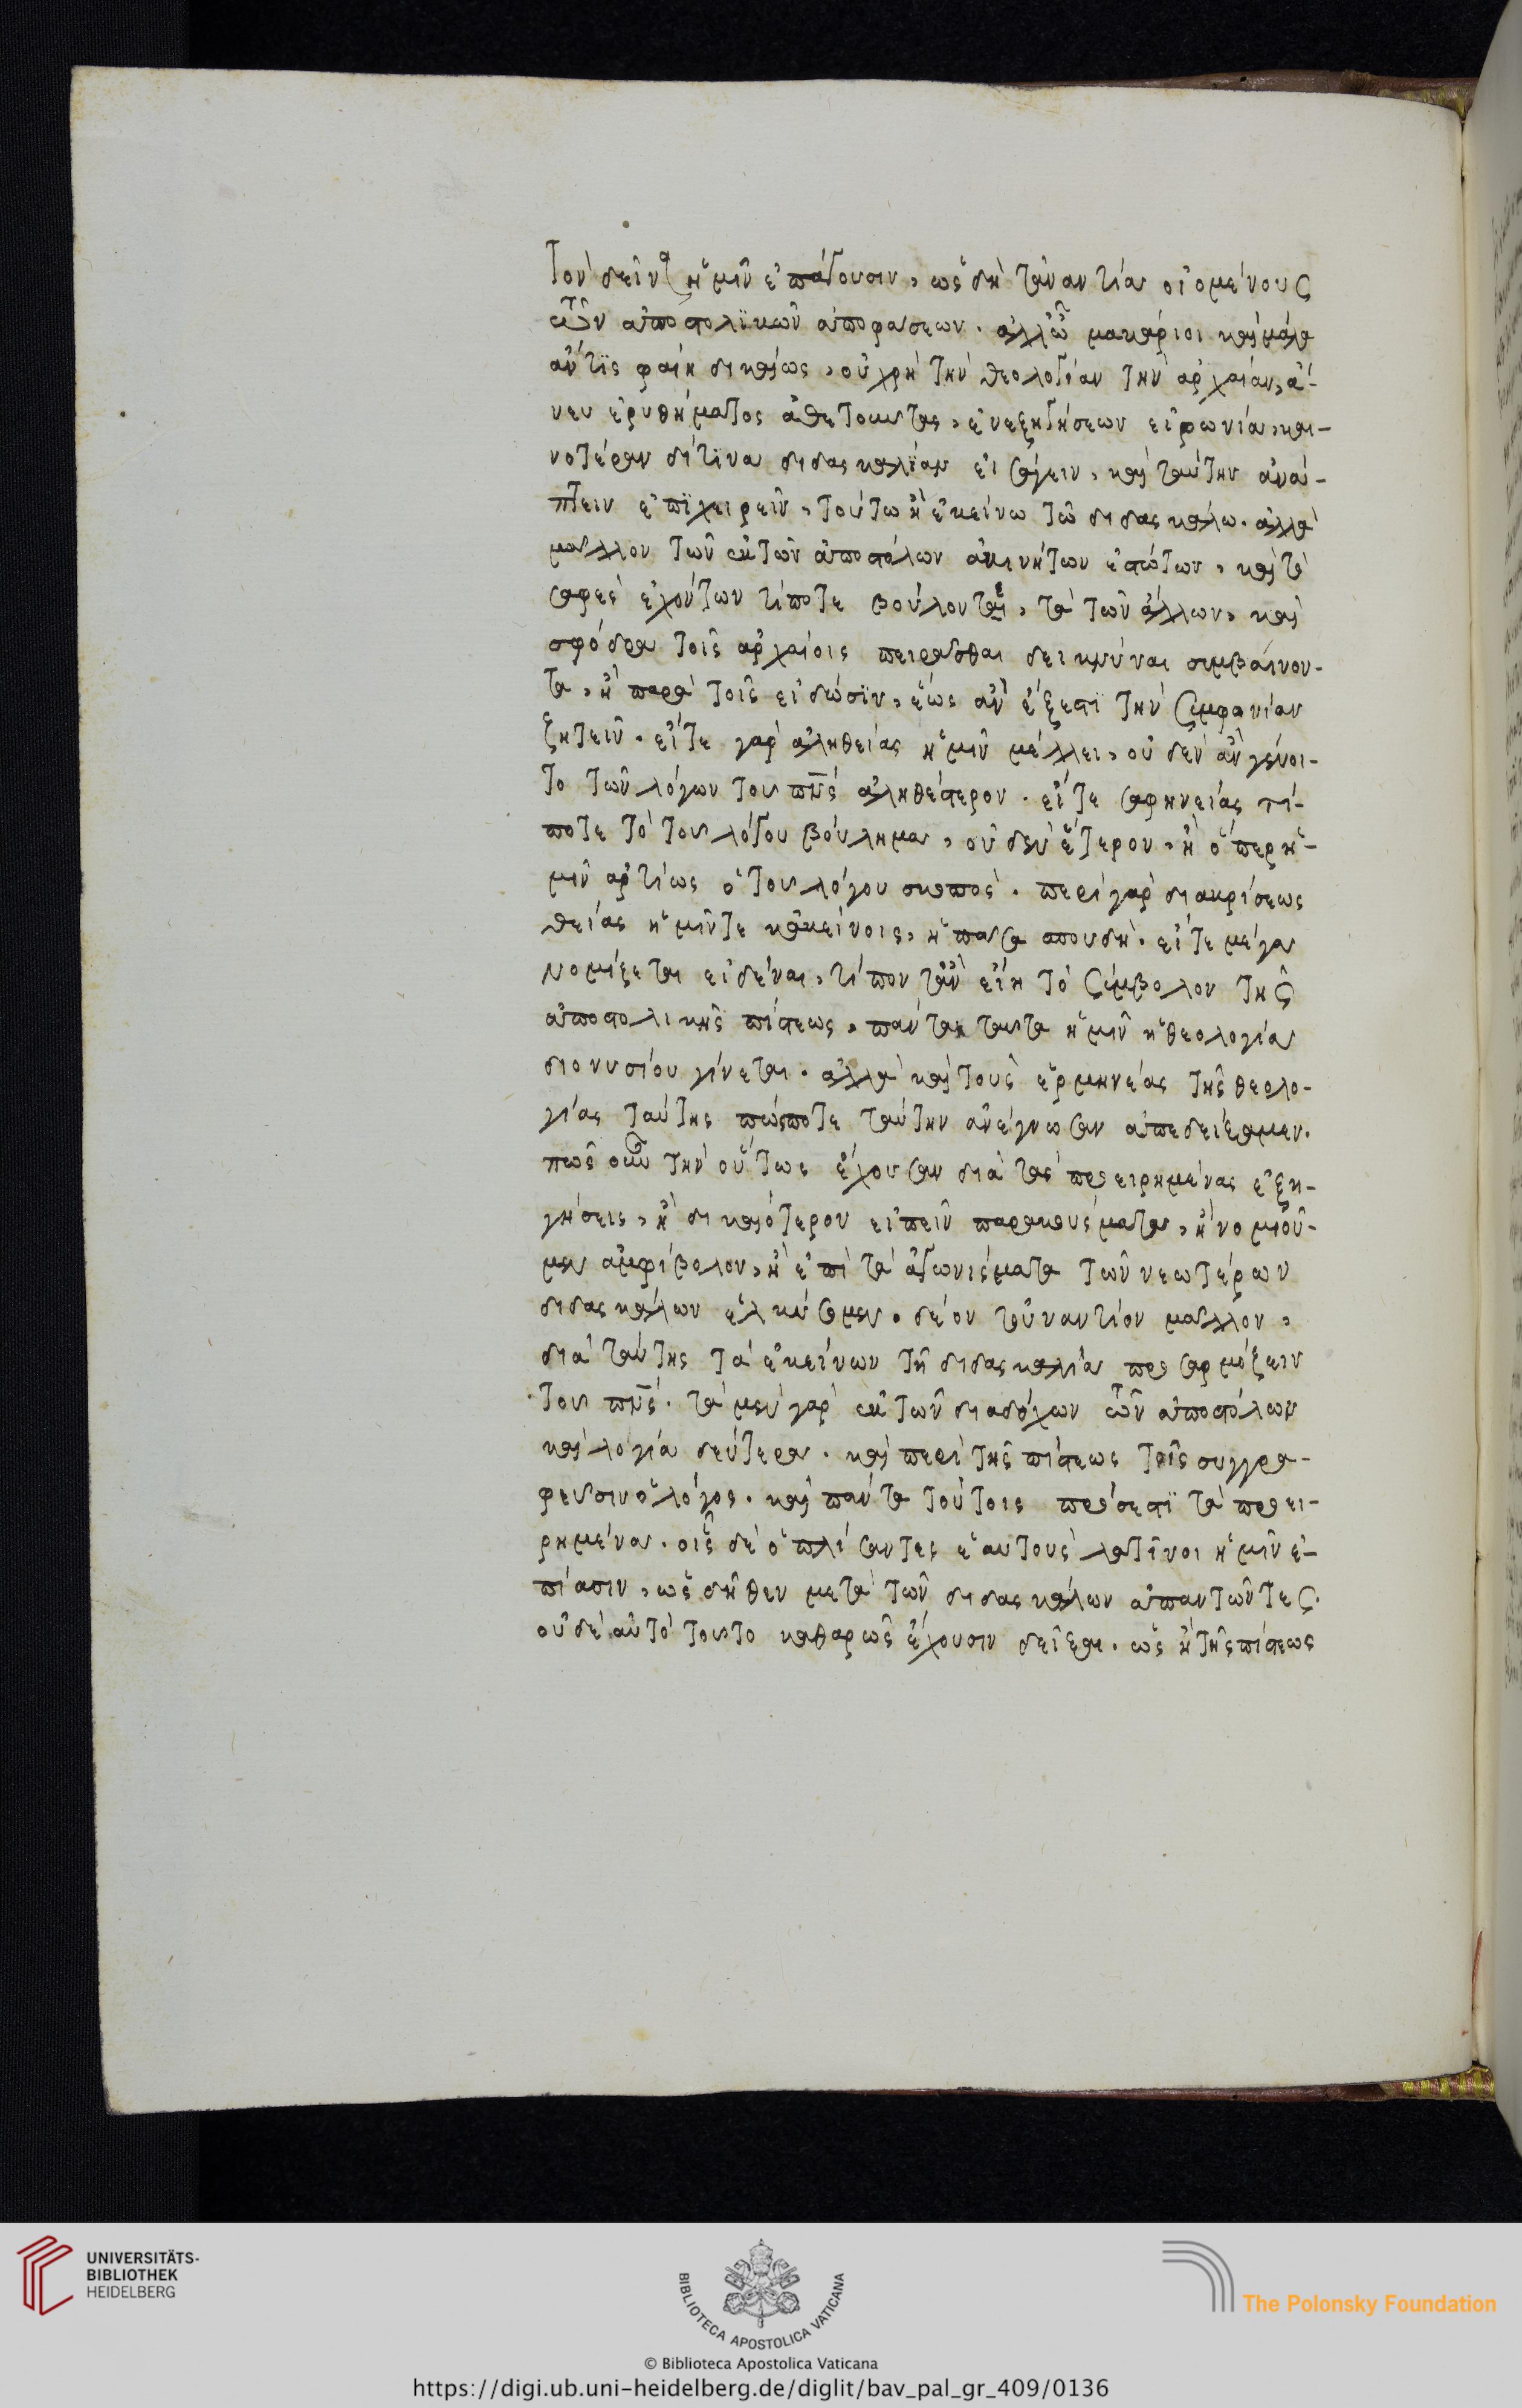 τον δεῖνα ἡμῖν ἐπάγουσιν, ὡς δὴ τἀναντία οἰομένους
τῶν ἀποστολικῶν ἀποφάσεων. ἀλλ' ὦ μακάριοι καὶ μάλα
ἄν τις φαίη δικαίως, οὐ χρὴ τὴν θεολογίαν τὴν ἀρχαίαν, ἄ-
νευ ἐρυθήματος ἀθετοῦντας,
νοτέραν δή τινα διδασκαλίαν εἰσάγειν, καὶ ταύτην ἀνά-
πτειν ἐπιχειρεῖν, τούτω ἢ ἐκείνω τῶ διδασκάλω. ἀλλὰ
μᾶλλον τῶν ἐκ τῶν ἀποστόλων ἀκινήτων ἑστώτων, καὶ τὸ
σαφὲς ἐχόντων τί ποτε βούλονται, τὰ τῶν ἄλλων, καὶ
σφόδρα τοῖς ἀρχαίοις πειρᾶσθαι δεικνύναι συμβαίνον-
τα, ἢ παρὰ τοῖς εἰδόσιν, ἕως ἂν ἔξεστι τὴν συμφωνίαν
ζητεῖν. εἴτε γὰρ ἀληθείας ἡμῖν μέλλει, οὐδὲν ἂν γένοι-
το τῶν λόγων τοῦ πνς ἀληθέστερον. εἴτε σαφηνείας τί-
ποτε τὸ τοῦ λόγου βούλημα, οὐδὲν ἕτερον, ἢ ὅπερ ἡ-
μῖν ἀρτίως ὁ τοῦ λόγου σκοπός. περὶ γὰρ διακρίσεως
θείας ἡμῖν τε κἀκείνοις, ἡ πᾶσα σπουδή. εἴτε μέγα
νομίζεται εἰδέναι, τί που τἂν εἴη τὸ σύμβολον τῆς
ἀποστολικῆς πίστεως, πάντα ταῦτα ἡμῖν ἡ θεολογία
διονυσίου γίνεται. ἀλλὰ καὶ τοὺς ἑρμηνέας τῆς θεολο-
γίας ταύτης πώςποτε ταύτην ἀνέγνωσαν ἀπεδείξαμεν.
πῶς οὖν τὴν οὕτως ἔχουσαν διὰ τὰς προειρημένας ἐξη-
γήσεις, ἢ δικαιότερον εἰπεῖν παρακούσματα, ἢ νομιοῦ-
μεν ἀμφίβολον, ἢ ἐπὶ τὰ ἀγωνίσματα τῶν νεωτέρων
διδασκάλων ἑλκύσομεν. δέον τοὐναντίον μᾶλλον,
διὰ ταύτης τὰ ἐκείνων τῆ διδασκαλία προσαρμόζειν
τοῦ πνς. τὰ μὲν γὰρ ἐκ τῶν διαδόχων τῶν ἀποστόλων
καὶ λόγια δεύτερα. καὶ περὶ τῆς πίστεως τοῖς συγγρα-
φεῦσιν ὁ λόγος. καὶ πάντα τούτοις πρόσεστι τὰ προει-
ρημένα. οἷς δὲ ὁπλίσαντες ἑαυτοὺς λατῖνοι ἡμῖν ἐ-
πίασιν, ὡς δῆθεν μετὰ τῶν διδασκάλων ἀπαντῶντες.
οὐδὲ αὐτὸ τοῦτο καθαρῶς ἔχουσιν δεῖξαι. ὡς ἢ τῆς πίστεως
UNIVERSITÄTS-
BIBLIOTHEK
HEIDELBERG
BIBLIOTECA APOSTOLICA VATICANA
The Polonsky Foundation
© Biblioteca Apostolica Vaticana
https://digi.ub.uni-heidelberg.de/diglit/bav_pal_gr_409/0136